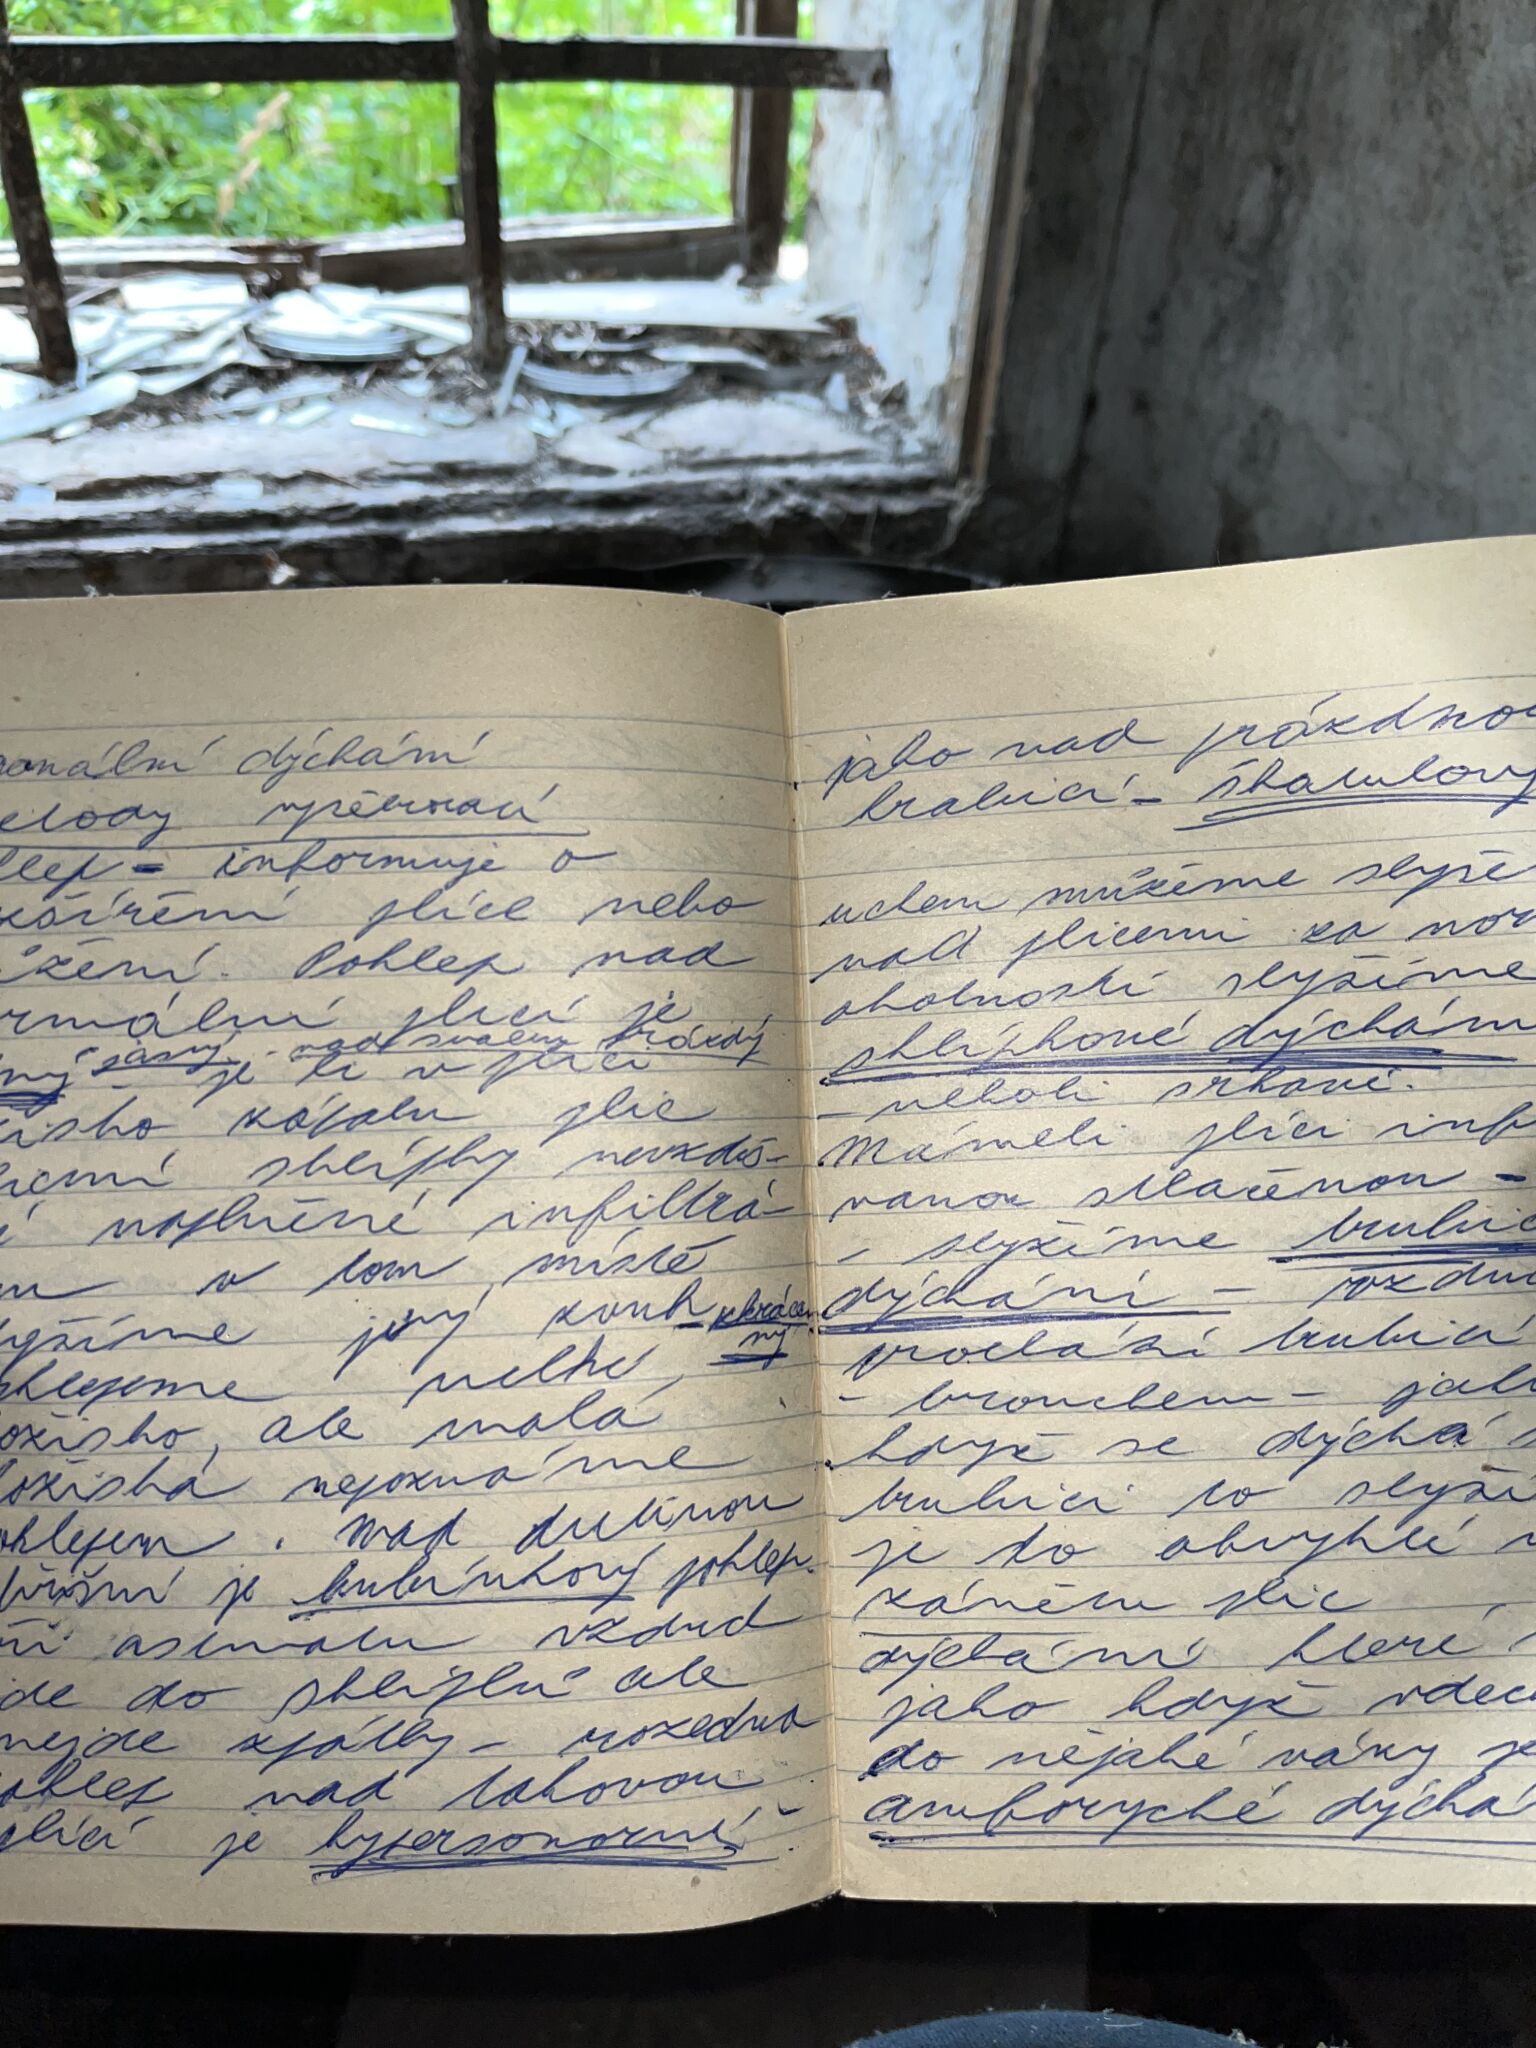 onální dýchání
etody vyšetrovací
klep - informuje o
zšíření plíce nebo
úžení. Poklep nad
rmální plící je
ný jasný nad svaly krátký
je li v plíci
žisko zápalu plic
icní sklípky nevzduš-
í naplněné infiltrá-
em v tom místě
yšíme jiný zvuk zkráce-
ný
oklepeme velké
ožisko, ale malá
ožiská nepoznáme
oklepem. Nad dutinou
břišní je bubínkový poklep.
ři asmatu vzduch
jde do sklípků ale
nejde zpátky - rozedma
oklep nad takovou
plící je hypersonorní.
jako nad prázdnou
krabicí - škatulový
uchem můžeme slyše
nad plícemi za nor
okolností slyšíme
sklípkové dýchán
- neboli
Mámeli plíci inf
vanou stlačenou -
- slyšíme trubic
dýchání - vzduc
prochází trubicí
- bronchem - jak
když se dýchá s
trubici to slyší
je to obvyklé u
zánětu plic
dýchání které
jako když vdech
do nějaké vázy je
amforycké dýchá